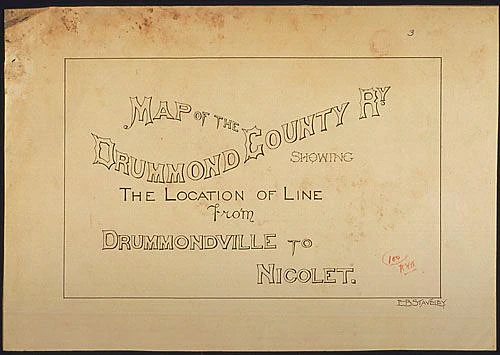 3
MAP OF THE
DRUMMOND COUNTY RY
SHOWING
THE LOCATION OF LINE
From
DRUMMONDVILLE TO
NICOLET.
100
E.B. STAVELEY